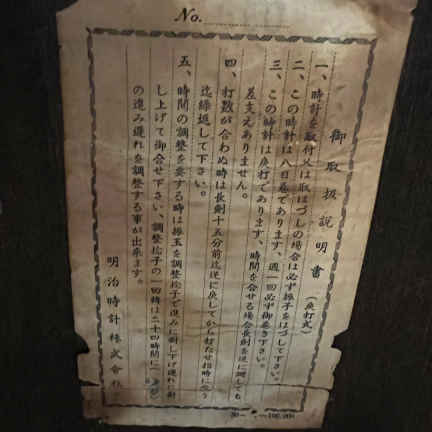 No.
御取扱説明書
（戻打式）
一、時計を取付又は取はづしの場合は必ず振子をはづして下さい。
二、この時計は八日巻であります、週一回必ず御巻き下さい。
三、この時計は戻打であります、時間を合せる場合長剣を逆に廻しても
差支えありません。
四、打数が合わぬ時は長剣十五分前迄逆に戻してから打たせ指時に合う
迄繰返して下さい。
五、時間の調整を要する時は振玉を調整捻子で進みに対し下げ遅れに対
し上げて御合せ下さい、調整捻子の一回転は二十四時間に
の進み遅れを調整する事が出来ます。
明治時計株式会社